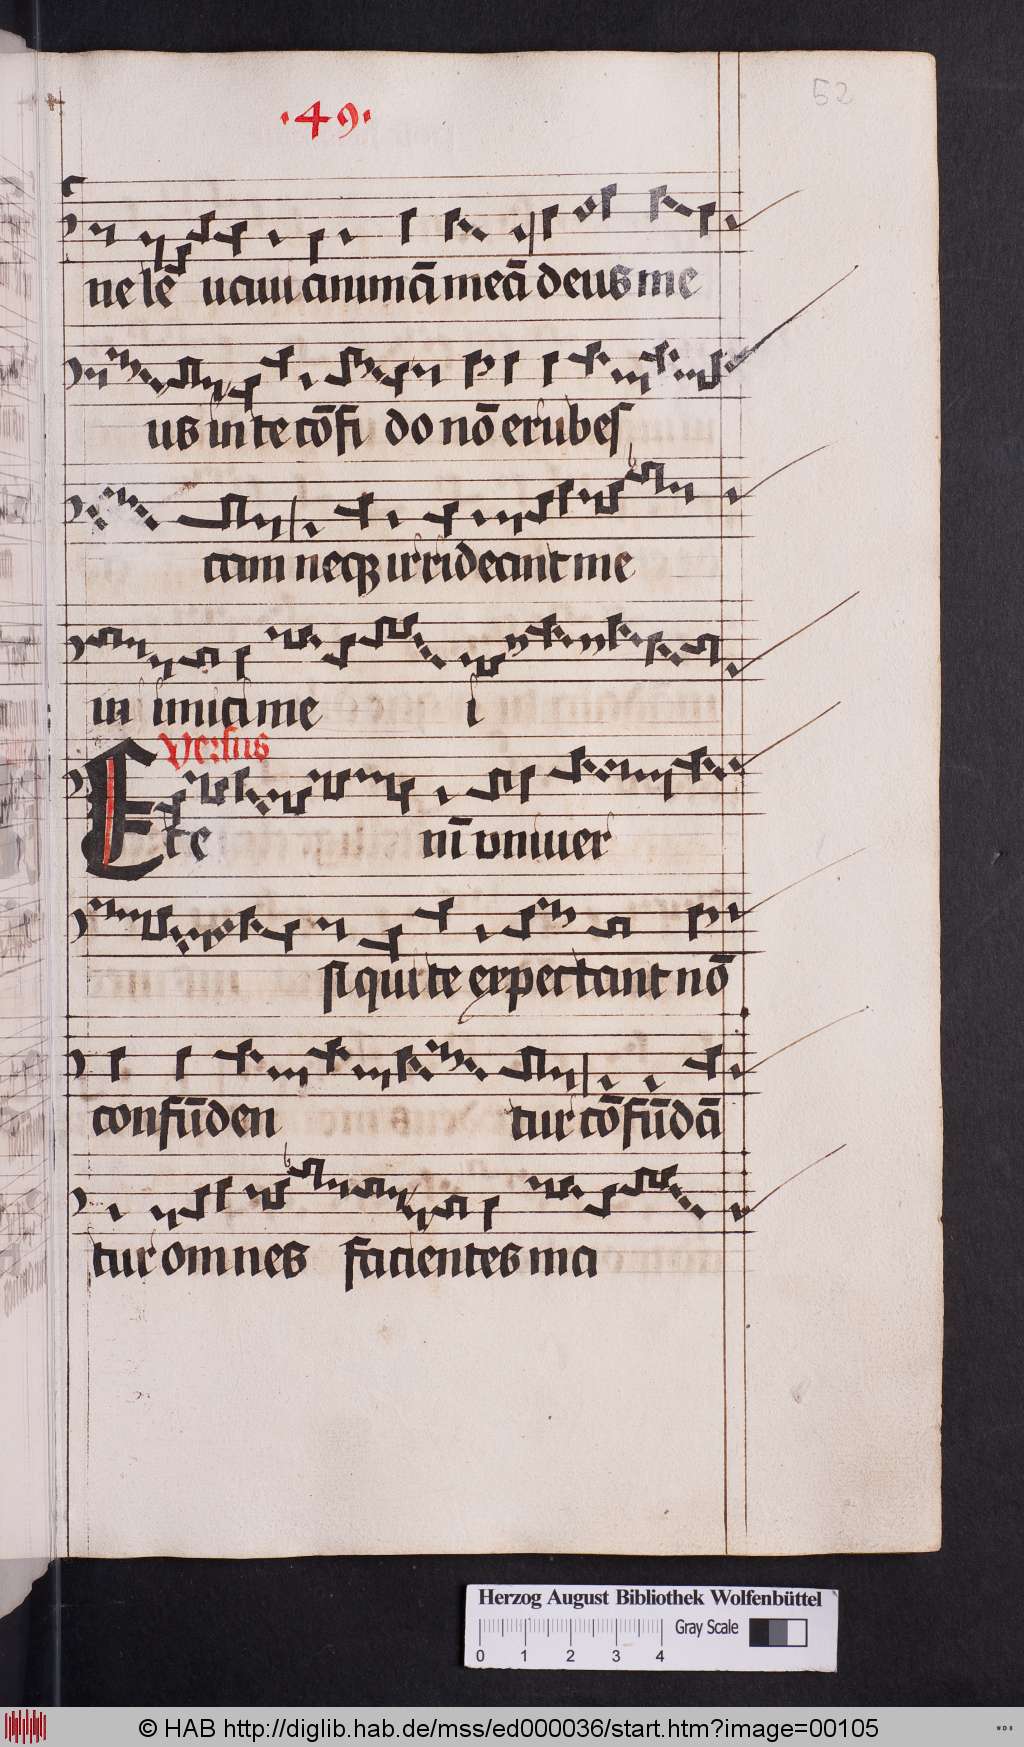 ·49·
52
ne le uaui animā meā deus me
us in te cō fi do nō erubes
cam neqꝫ irrideant me
in imici me i
Versus
Ete nī vniuer
si qui te expectant nō
confūden tur cōfūdā
tur omnes facientes ma
Herzog August Bibliothek Wolfenbüttel
Gray Scale
0 1 2 3 4
© HAB http://diglib.hab.de/mss/ed000036/start.htm?image=00105